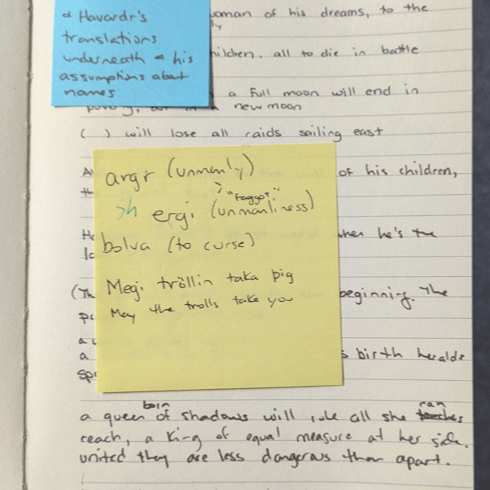 & Havardr's
translations
underneath & his
assumptions about
names
woman of his dreams, to the
children, all to die in battle
a full moon will end in
new moon
( ) will lose all raids sailing east
of his children,
argr (unmanly)
"faggot"
ergi (unmanliness)
bolva (to curse)
when he's the
Megi tröllin taka þig
May the trolls take you
(Th
beginning. The
a
a
s birth heralds
born can
a queen of shadows will rule all she touches
reach, a king of equal measure at her side.
united they are less dangerous than apart.